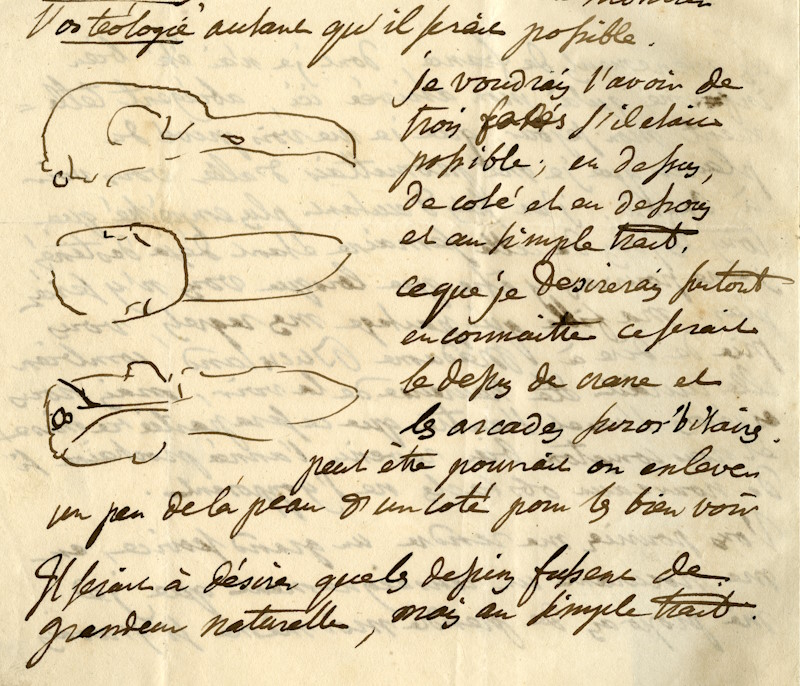 l'osteologie autant qu'il serait possible.
je voudrais l'avoir de
trois s'il etait
possible; en dessus,
de coté et en dessous
et au simple trait.
ce que je desirerais surtout
en connaitre ce serait
le dessus de crane et
les arcades surorbitaire.
peut être pourrait on enlever
un peu de la peau d'un coté pour les bien voir
Il serait à désirer que les dessins fussent de
grandeur naturelle, mais au simple trait.